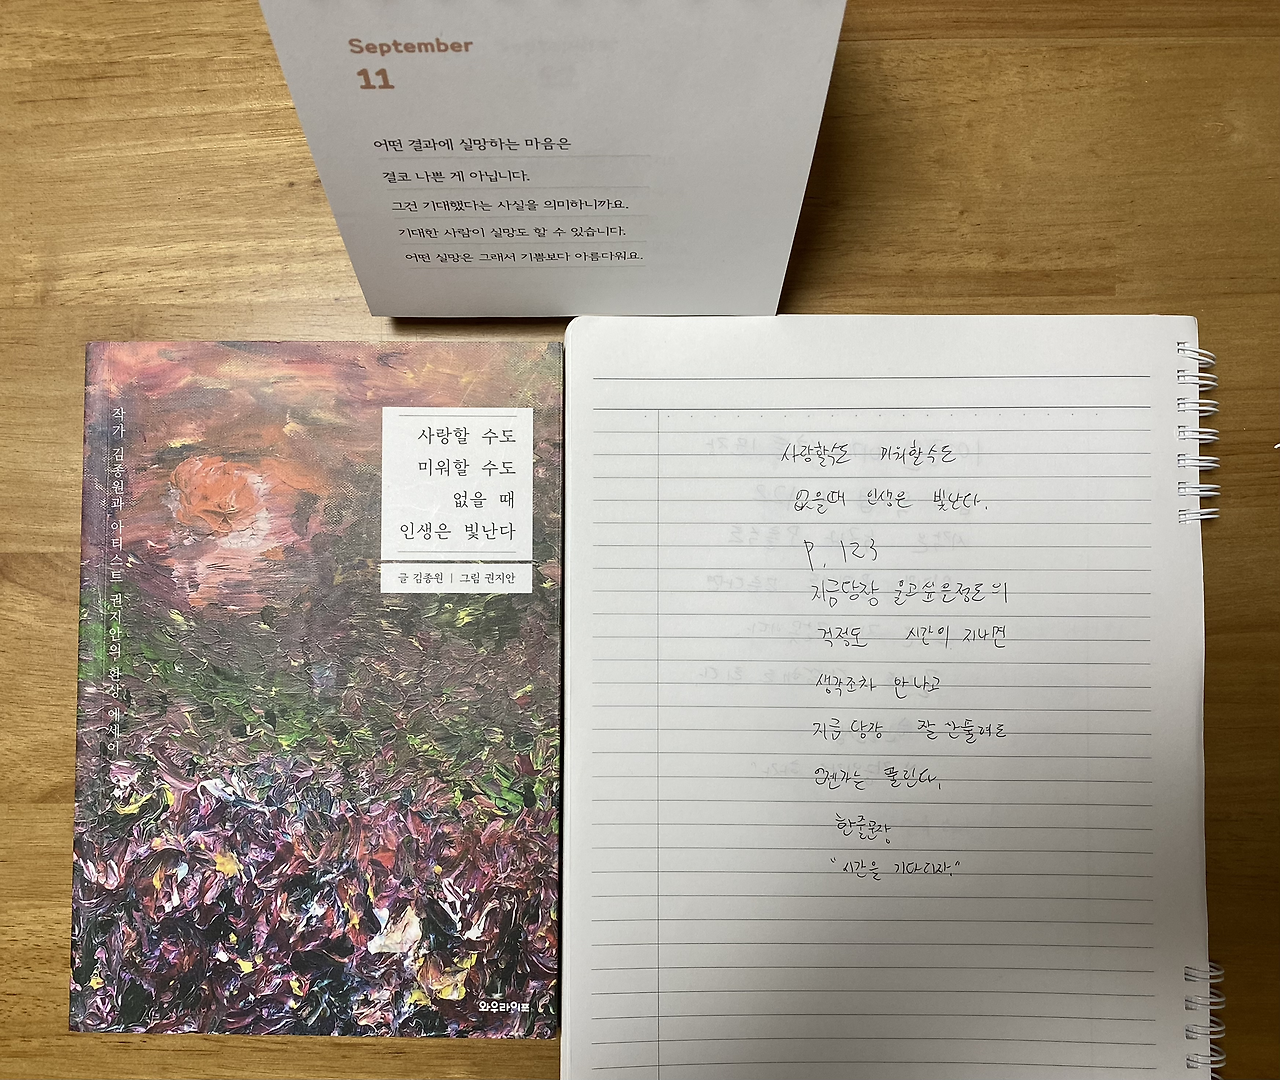 September
11
어떤 결과에 실망하는 마음은
결코 나쁜 게 아닙니다.
그건 기대했다는 사실을 의미하니까요.
기대한 사람이 실망도 할 수 있습니다.
어떤 실망은 그래서 기쁨보다 아름다워요.
작가 김종원과 아티스트 권지안의 환상 에세이
사랑할 수도
미워할 수도
없을 때
인생은 빛난다
글 김종원 | 그림 권지안
와우라이프
사랑할수도 미워할수도
없을때 인생은 빛난다.
P. 123
지금당장 울고싶은정도의
걱정도 시간이 지나면
생각조차 안나고
지금 당장 잘 안풀려도
언젠가는 풀린다.
한줄문장
"시간을 기다리자."